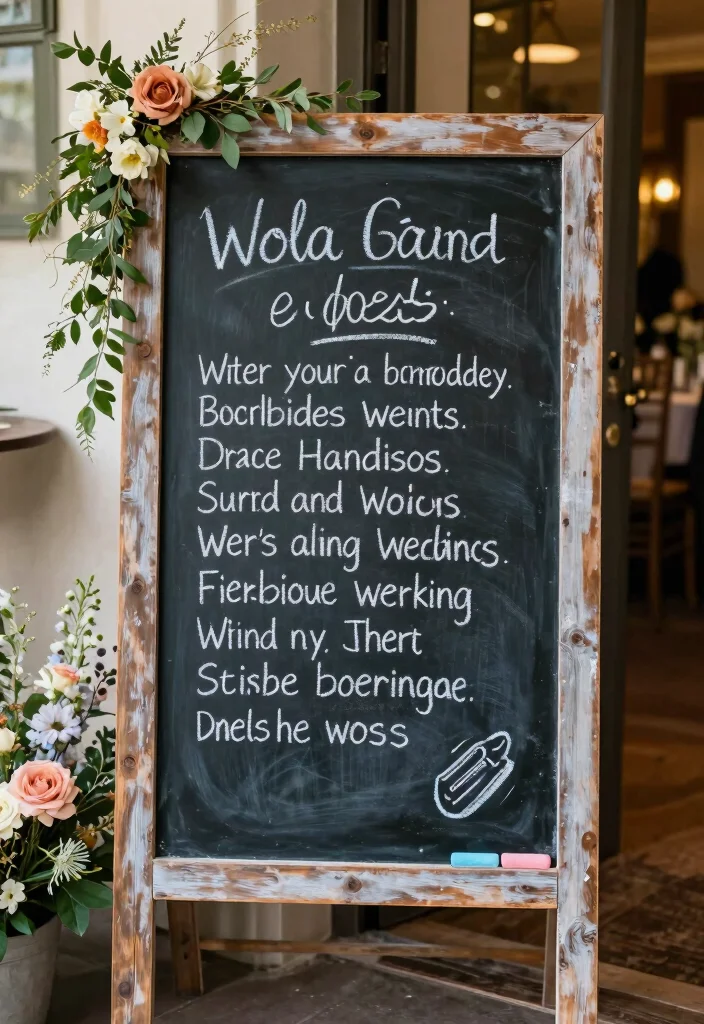 Wola Gaund
Witer your a bcmroddey.
Bocrlbides weints.
Drace Handisos.
Surrd and Woicus
Wer's aling Weclincs.
Fierbioue werking
Wtind ny. Jhert
Stisbe boeringae.
Dnels he woss